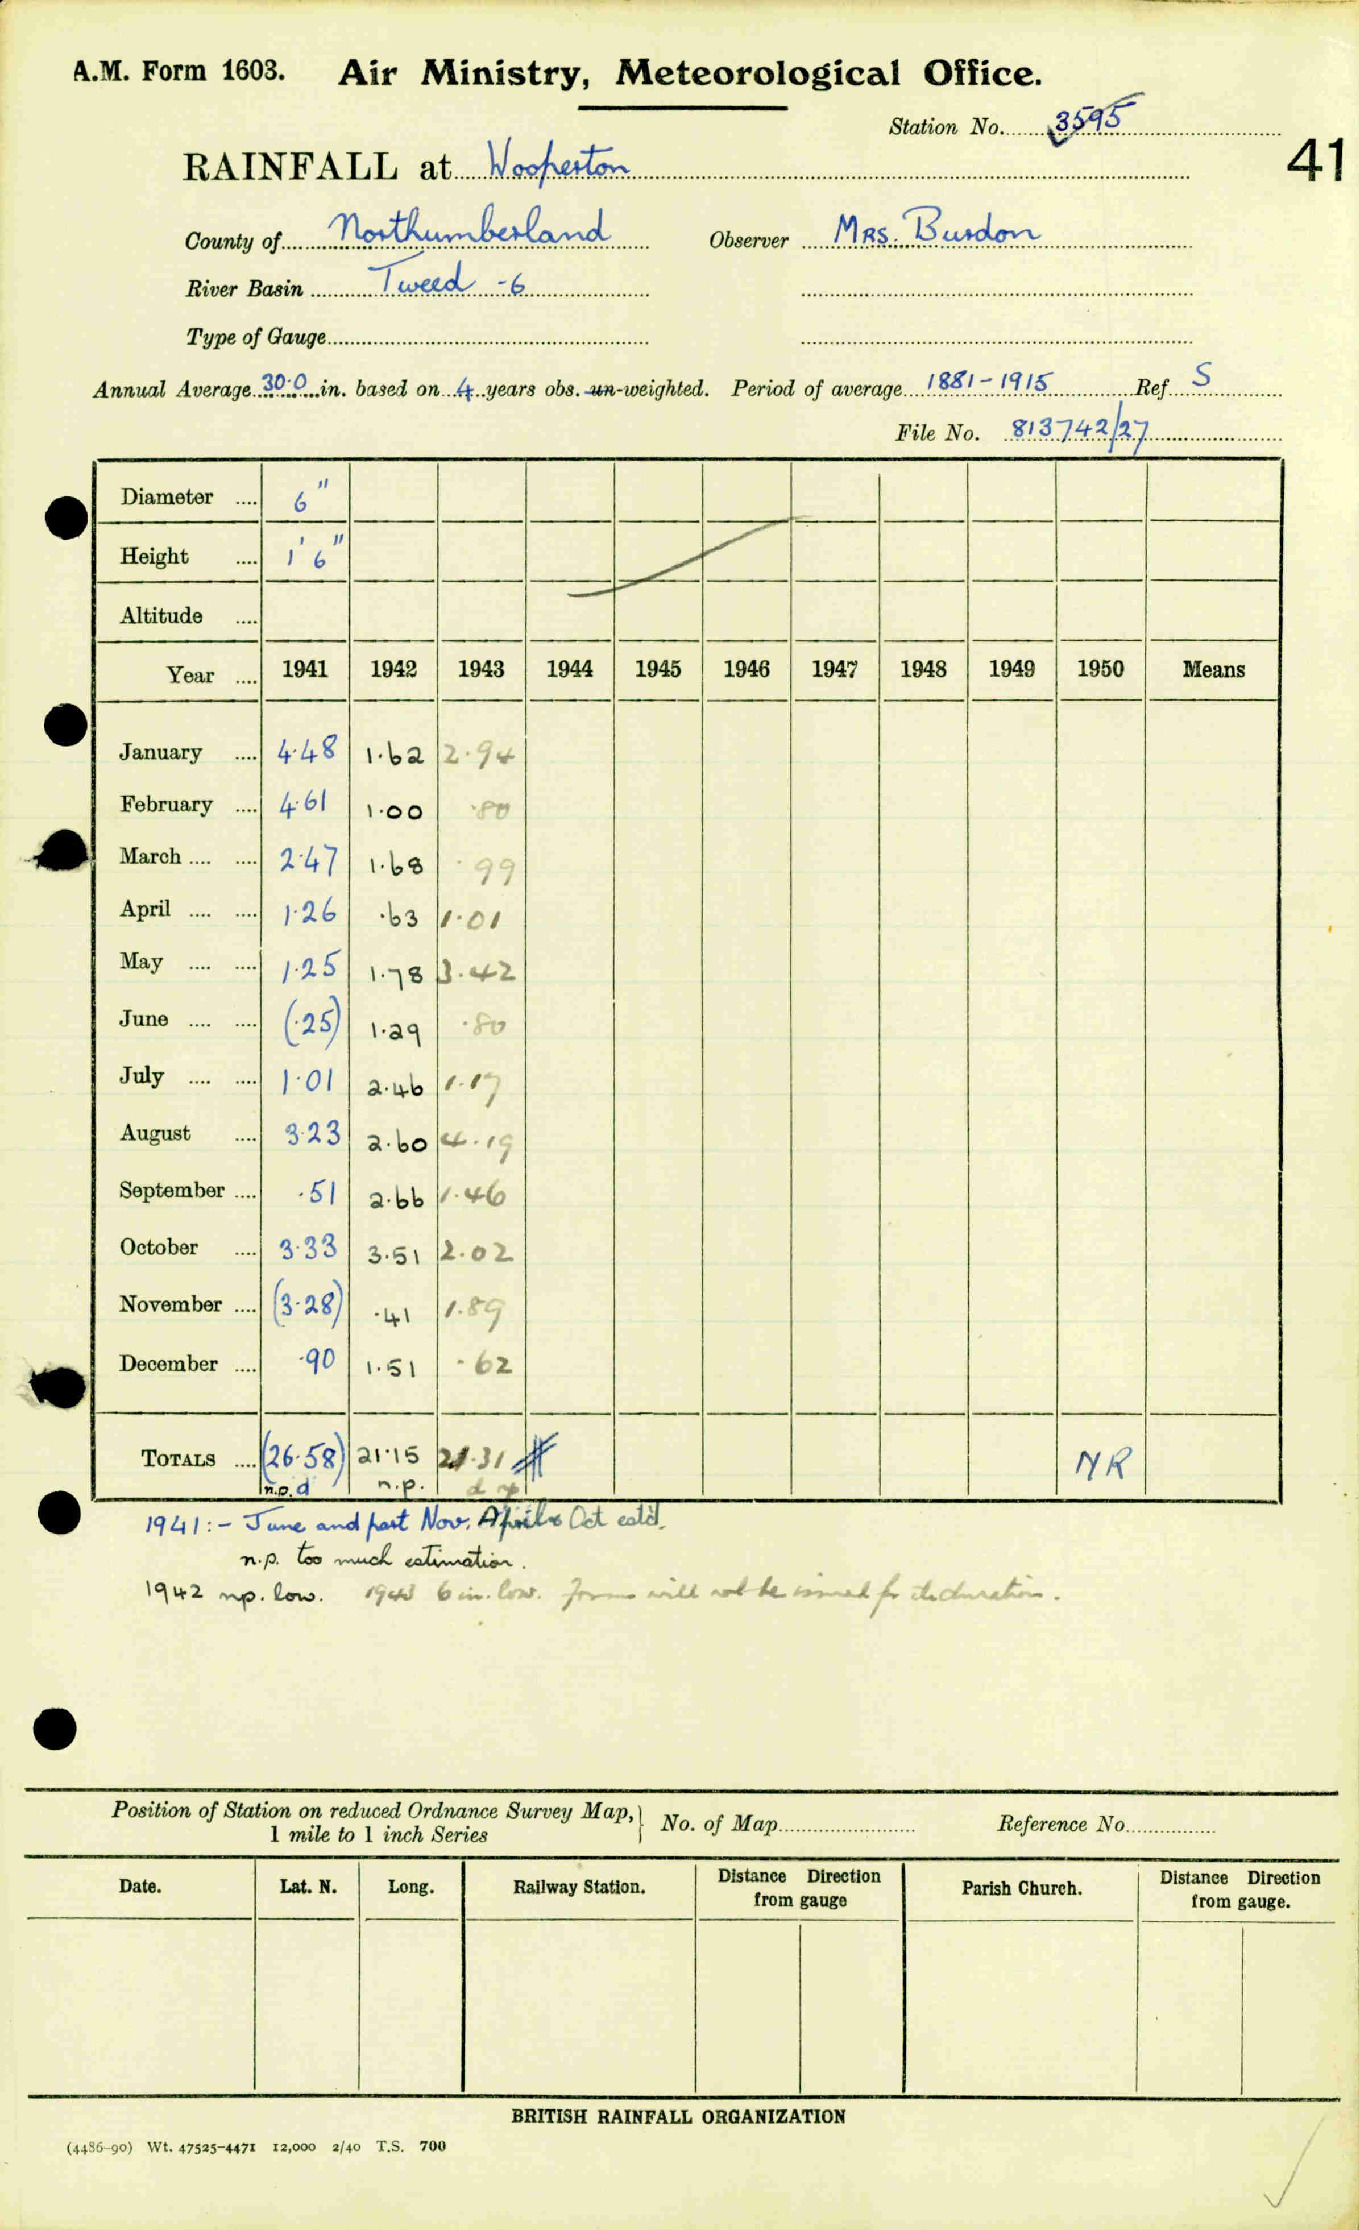 A.M. Form 1603. Air Ministry, Meteorological Office.
Station No. 3595
41
RAINFALL at Wooperton
County of Northumberland Observer Mrs. Burdon
River Basin Tweed -6
Type of Gauge
Annual Average 30.0 in. based on 4 years obs. un-weighted. Period of average 1881-1915 Ref. S
File No. 813742/27
Diameter .... 6"
Height .... 1' 6"
Altitude ....
Year .... 1941 1942 1943 1944 1945 1946 1947 1948 1949 1950 Means
January .... 4.48 1.62 2.94
February .... 4.61 1.00 .80
March .... .... 2.47 1.68 .99
April .... .... 1.26 .63 1.01
May .... .... 1.25 1.78 3.42
June .... .... (.25) 1.29 .80
July .... .... 1.01 2.46 1.17
August .... 3.23 2.60 4.19
September .... .51 2.66 1.46
October .... 3.33 3.51 2.02
November .... (3.28) .41 1.89
December .... .90 1.51 .62
TOTALS .... (26.58) 21.15 21.31 # NR
n.p. d n.p. d np
1941:- June and part Nov. April & Oct estd.
n.p. too much estimation.
1942 np. low. 1943 6 in. low. Forms will not be issued for the duration.
Position of Station on reduced Ordnance Survey Map, } No. of Map Reference No.
1 mile to 1 inch Series
Date. Lat. N. Long. Railway Station. Distance Direction from gauge Parish Church. Distance Direction from gauge.
BRITISH RAINFALL ORGANIZATION
(4486-90) Wt. 47525-4471 12,000 2/40 T.S. 700